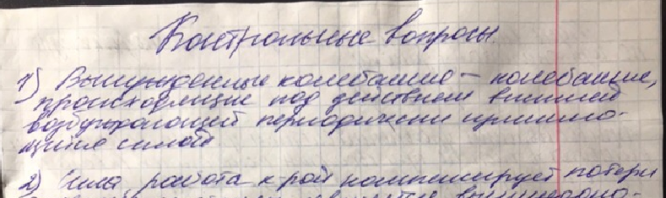 Контрольные вопросы
1) Вынужденные колебания – колебания,
происходящие под действием внешней
возбуждающей периодически
силой
2) Сила, работа к-рой компенсирует потери